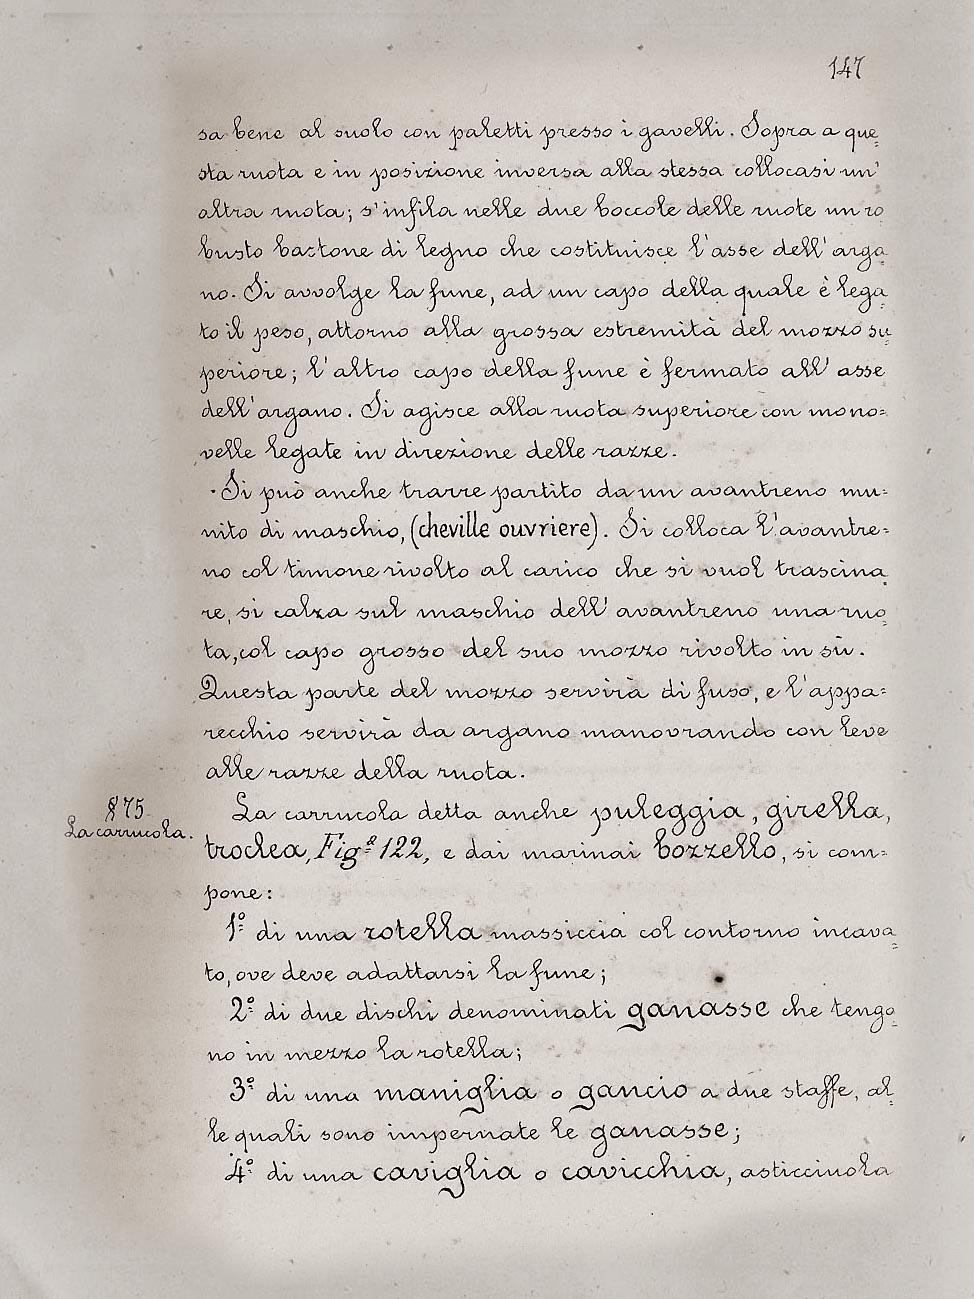 147
sa bene al suolo con paletti presso i gavelli. Sopra a que=
sta ruota e in posizione inversa alla stessa collocasi un'
altra ruota; s'infila nelle due boccole delle ruote un ro
busto bastone di legno che costituisce l'asse dell'arga=
no. Si avvolge la fune, ad un capo della quale è lega=
to il peso, attorno alla grossa estremità del mozzo su=
periore; l'altro capo della fune è fermato all'asse
dell'argano. Si agisce alla ruota superiore con mano=
velle legate in direzione delle razze.
Si può anche trarre partito da un avantreno mu=
nito di maschio, (cheville ouvriere). Si colloca l'avantre=
no col timone rivolto al carico che si vuol trascina=
re, si calza sul maschio dell'avantreno una ruo=
ta, col capo grosso del suo mozzo rivolto in sù.
Questa parte del mozzo servirà di fuso, e l'appa=
recchio servirà da argano manovrando con leve
alle razze della ruota.
§ 75
La carrucola.
La carrucola detta anche puleggia, girella,
troclea, Fig.ª 122, e dai marinai bozzello, si com=
pone:
1º di una rotella massiccia col contorno incava=
to, ove deve adattarsi la fune;
2º di due dischi denominati ganasse che tengo=
no in mezzo la rotella;
3º di una maniglia o gancio a due staffe, al=
le quali sono impernate le ganasse;
4º di una caviglia o cavicchia, asticciuola